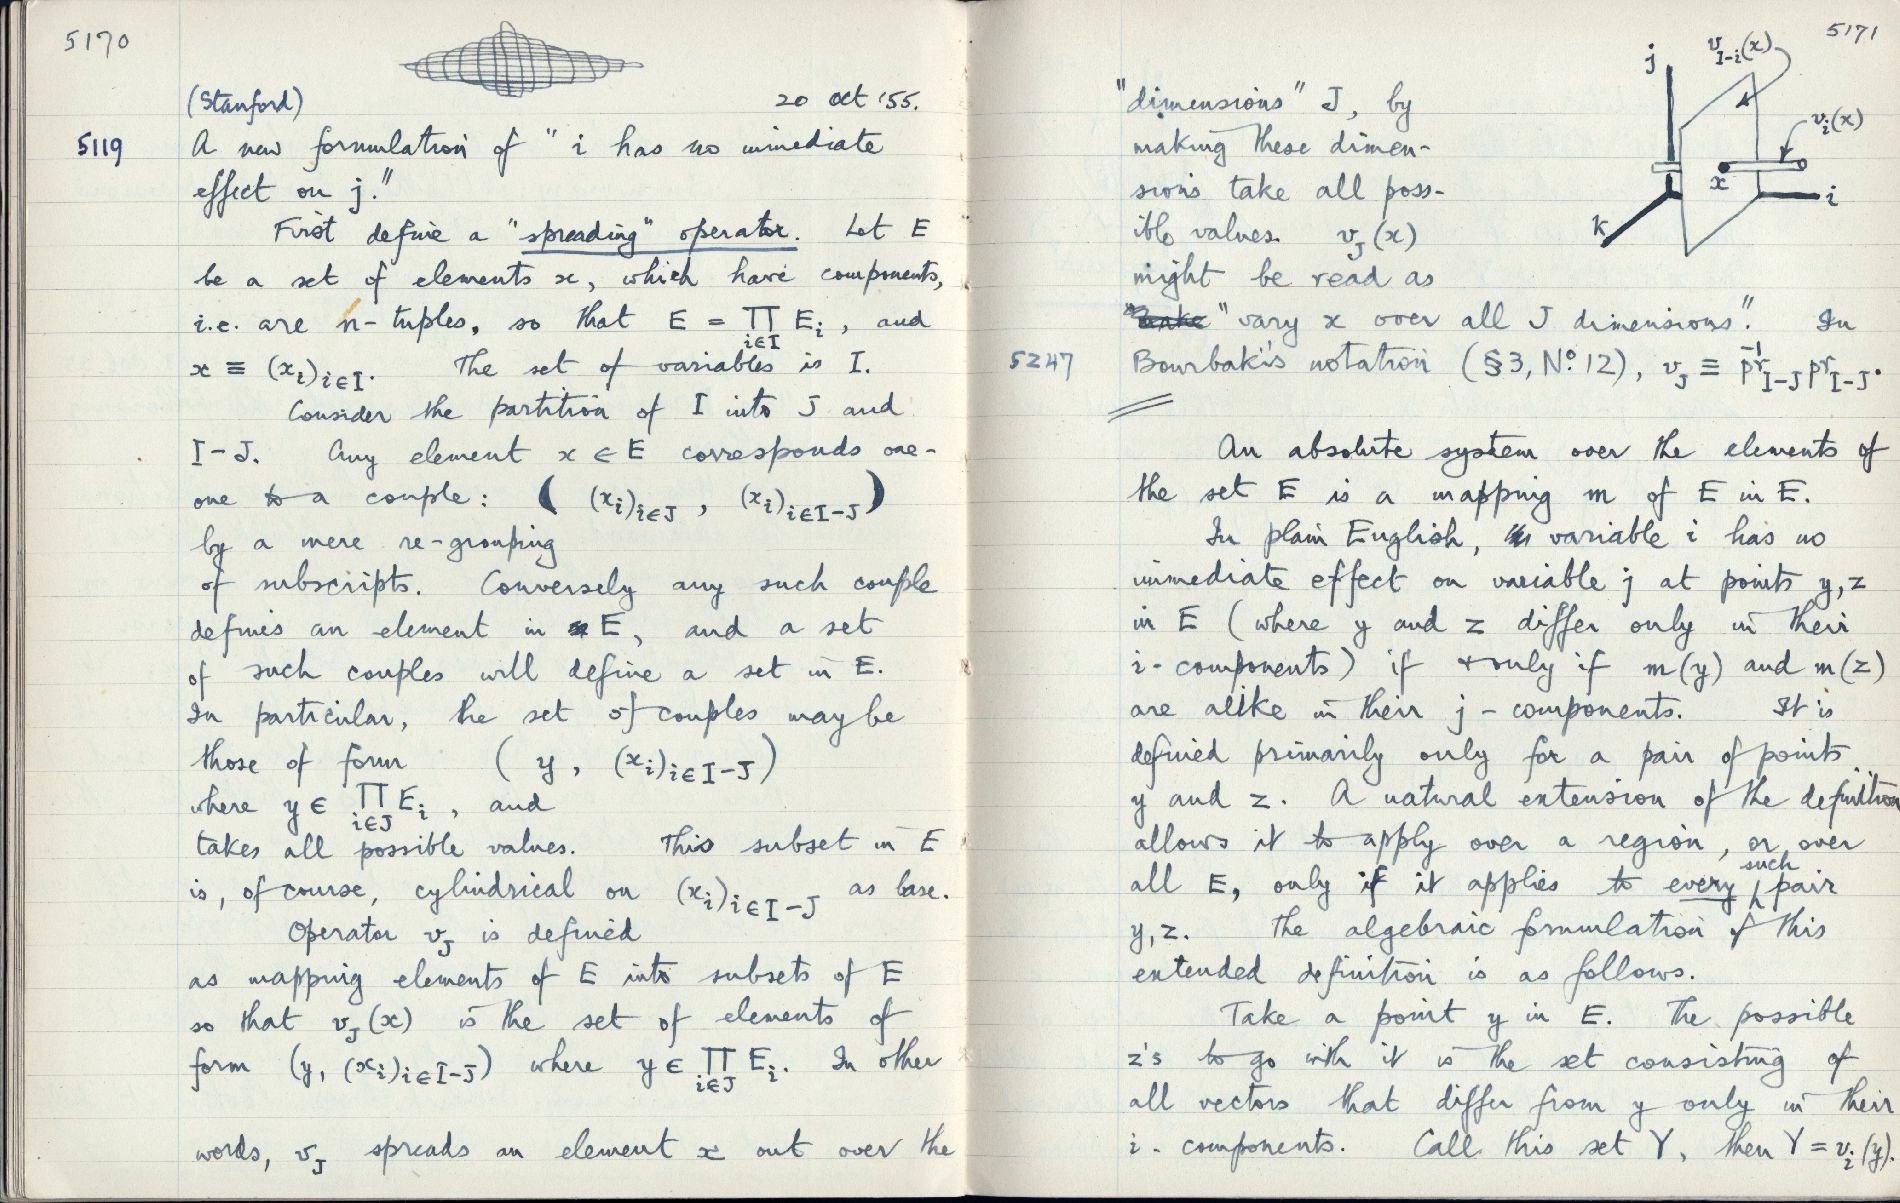 5170
(Stanford) 20 Oct '55.
5119 A new formulation of "i has no immediate
effect on j."
First define a "spreading" operator. Let E
be a set of elements x, which have components,
i.e. are n-tuples, so that E = ∏_{i∈I} E_i, and
x ≡ (x_i)_{i∈I}. The set of variables is I.
Consider the partition of I into J and
I-J. Any element x ∈ E corresponds one-
one to a couple: ((x_i)_{i∈J}, (x_i)_{i∈I-J})
by a mere re-grouping
of subscripts. Conversely any such couple
defines an element in E, and a set
of such couples will define a set in E.
In particular, the set of couples may be
those of form (y, (x_i)_{i∈I-J})
where y ∈ ∏_{i∈J} E_i, and
takes all possible values. This subset in E
is, of course, cylindrical on (x_i)_{i∈I-J} as base.
Operator v_J is defined
as mapping elements of E into subsets of E
so that v_J(x) is the set of elements of
form (y, (x_i)_{i∈I-J}) where y ∈ ∏_{i∈J} E_i. In other
words, v_J spreads an element x out over the
5171
j
v_{I-i}(x)
v_i(x)
x
i
k
"dimensions" J, by
making these dimen-
sions take all poss-
ible values. v_J(x)
might be read as
"vary x over all J dimensions". In
5247 Bourbaki's notation (§3, No. 12), v_J ≡ p̄r^{-1}_{I-J} pr_{I-J}.
An absolute system over the elements of
the set E is a mapping m of E in E.
In plain English, variable i has no
immediate effect on variable j at points y, z
in E (where y and z differ only in their
i-components) if + only if m(y) and m(z)
are alike in their j-components. It is
defined primarily only for a pair of points
y and z. A natural extension of the definition
allows it to apply over a region, or over
all E, only if it applies to every such pair
y, z. The algebraic formulation of this
extended definition is as follows.
Take a point y in E. The possible
z's to go with it is the set consisting of
all vectors that differ from y only in their
i-components. Call this set Y, then Y = v_i(y).